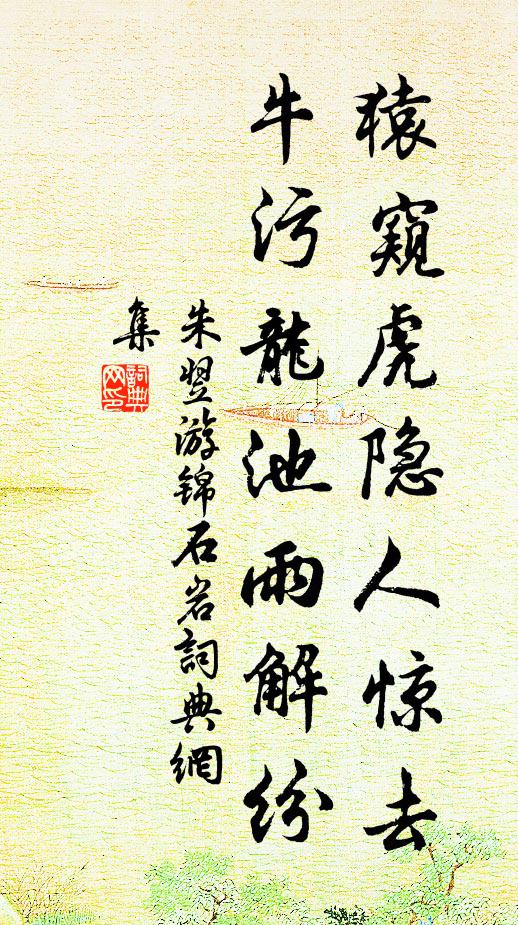 猿窺虎隐人惊去
牛污龍池雨解纷
朱翌游锦石岩詞典網
集
詞典
网印